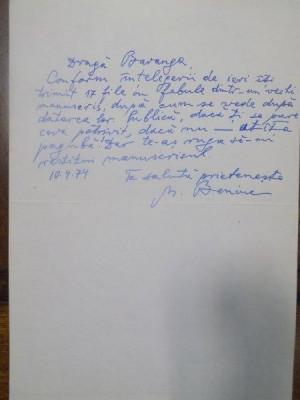 Dragă Baranga,
Conform înțelegerii de ieri îți
trimit 17 file cu fabule dintr-un vechi
manuscris, după cum se vede după
datarea lor. Publică, dacă ți se pare
ceva potrivit, dacă nu — atîta
pagubă. Dar te-aș ruga să-mi
restitui manuscrisul.
10.4.74 Te salută prietenește
M. Beniuc